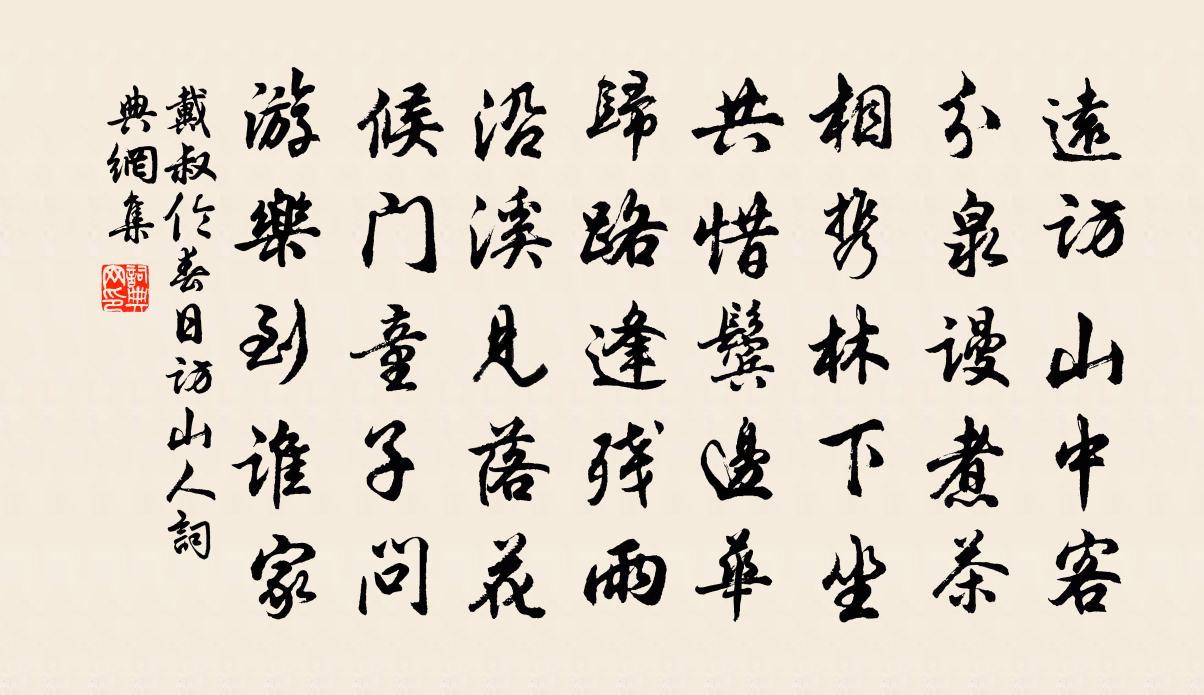 遠訪山中客
分泉謾煮茶
相携林下坐
共惜鬓邊華
歸路逢残雨
沿溪見落花
候门童子问
游樂到誰家
戴叔伦春日访山人詞
典網集
詞典网印